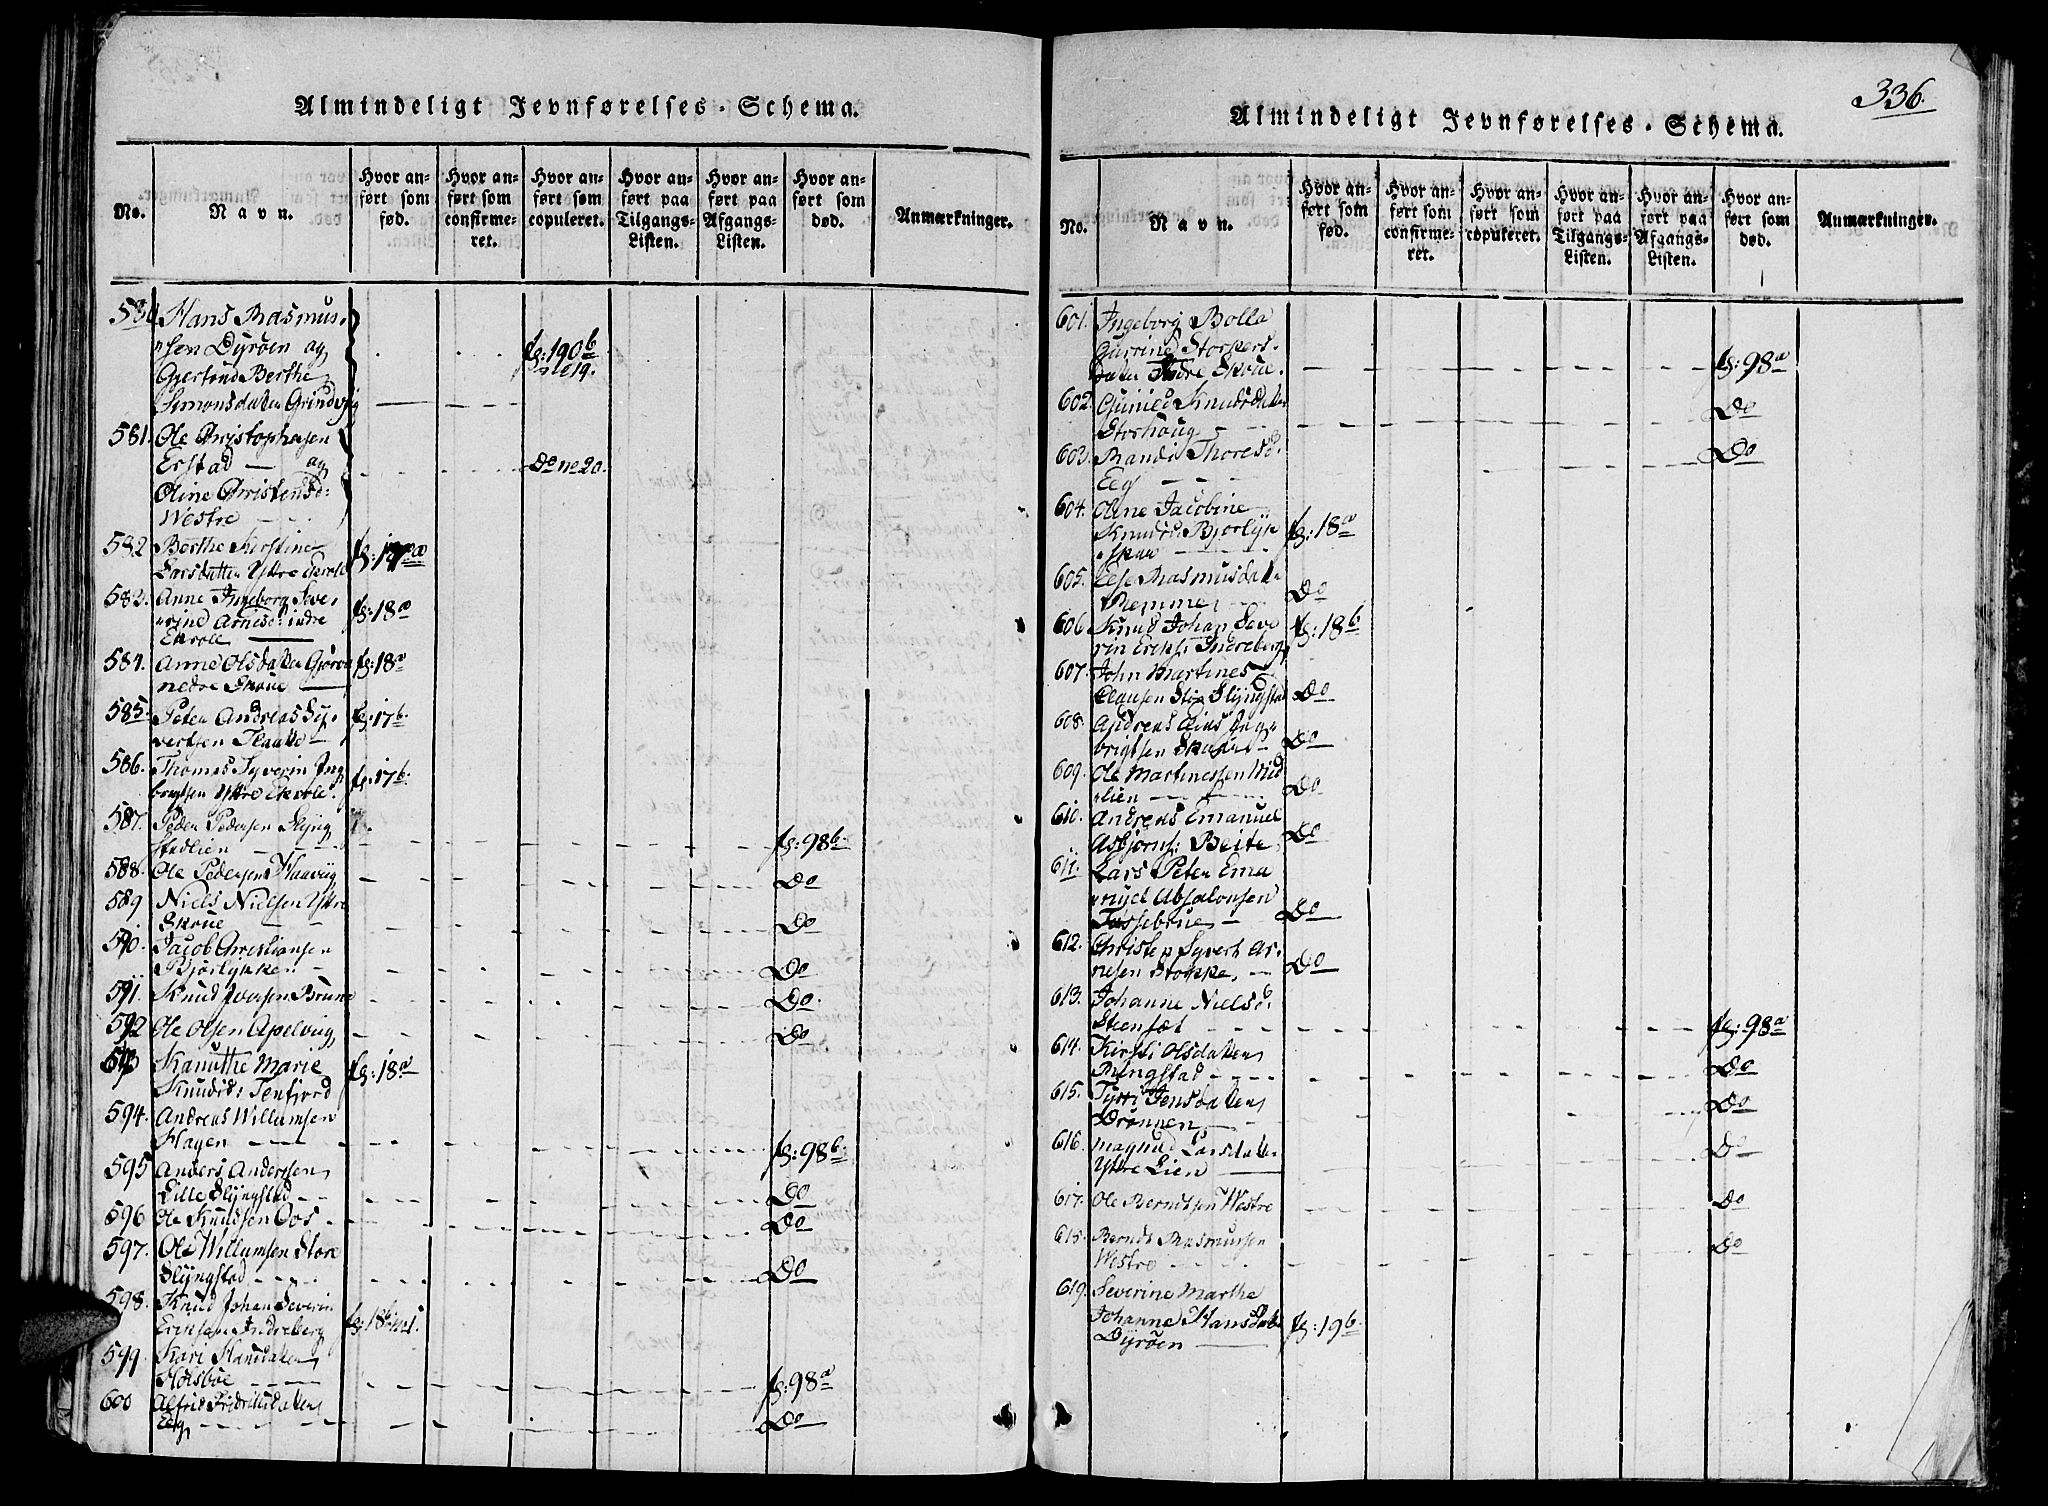 Almindeligt Jevnførelses-Schema.
No.
Navn.
Hvor an-
ført som
fød.
Hvor an-
ført som
confirme-
ret.
Hvor an-
ført som
copuleret.
Hvor an-
ført paa
Tilgangs-
Listen.
Hvor an-
ført paa
Afgangs-
Listen.
Hvor an-
ført som
død.
Anmærkninger.
580. Hans Rasmus-
sen Dyrøen og
Gjertrud Berthe
Simonsdatter Grindvig fg: 190b no 19.
581. Ole Christophersen
Erstad — og
Oline Christensd:
Westre Do no 20.
582 Berthe Kirstine
Larsdatter Yttre Ekrole fg: 17a
582. Anne Ingeborg Seve-
rind Arnesd: indre
Ekrole fg: 18a
584. Anne Olsdatter Gjørva
nedre Skoue fg: 18a
585. Peter Andreas Sy-
vertsen Flaate fg: 17b.
586. Thomas Syverin Ing
brigtsen Yttre Ekrole. fg: 17b.
587. Peder Pedersen Slyng
stadlien fg: 98b.
588. Ole Pedersen Haavig Do
589 Niels Nielsen Yttre
Skoue Do
590. Jacob Christiansen
Bjørlykken Do
591. Knud Iversen Brune Do.
592 Ole Olsen Apelvig Do
593 Kanutthe Marie
Knudsd: Tenfjord fg: 18a
594. Andreas Willumsen
Hagen fg: 98b.
595 Anders Andersen
Lille Slyngstad Do
596 Ole Knudsen Oos Do
597. Ole Willumsen Store
Slyngstad Do
598. Knud Johan Severin
Eriksen Indreberg fg: 18b. no 1.
599. Kari Hansdatter
Holsbøe fg: 98a
600 Alfrid Fridriksdatter
Eeg Do
336.
Almindeligt Jevnførelses-Schema.
No.
Navn.
Hvor an-
ført som
fød.
Hvor an-
ført som
confirme-
ret.
Hvor an-
ført som
copuleret.
Hvor an-
ført paa
Tilgangs-
Listen.
Hvor an-
ført paa
Afgangs-
Listen.
Hvor an-
ført som
død.
Anmærkninger.
601. Ingeborg Bolla
Gurrine Storkers-
datter Indre Skoue. fg: 98a
602. Gunild Knudsdatter
Storhaug Do
603. Randi Thoresd:
Eeg Do
604. Oline Jacobine
Knudsd: Bjorlyk
fg: 18a
605. Else Rasmusdatter
Remme Do
606 Knud Johan Seve
rin Eriks: Indreberg fg: 18b
607. John Martines
Clausen Slyngstad Do
608. Andreas Elias Ing-
brigtsen Do
609. Ole Martinessen Mid
lien Do
610. Andreas Emanuel
Asbjørns: Beite Do
611. Lars Peter Ema
nuel Absalonsen
Tassebrue Do
612. Christen Syvert Ar-
nesen Stokke Do
613. Johanne Nielsd:
Steensæt fg: 98a
614. Kirsti Olsdatter
Ringstad Do
615. Jensdatter
Drønnen Do
616. Magnild Larsdatter
Yttre Lien Do
617. Ole Berndtsen Westre Do
618. Bernds Rasmussen
Westre Do
619. Severine Marthe
Johanne Hansdatter
Dyrøen fg: 19b.